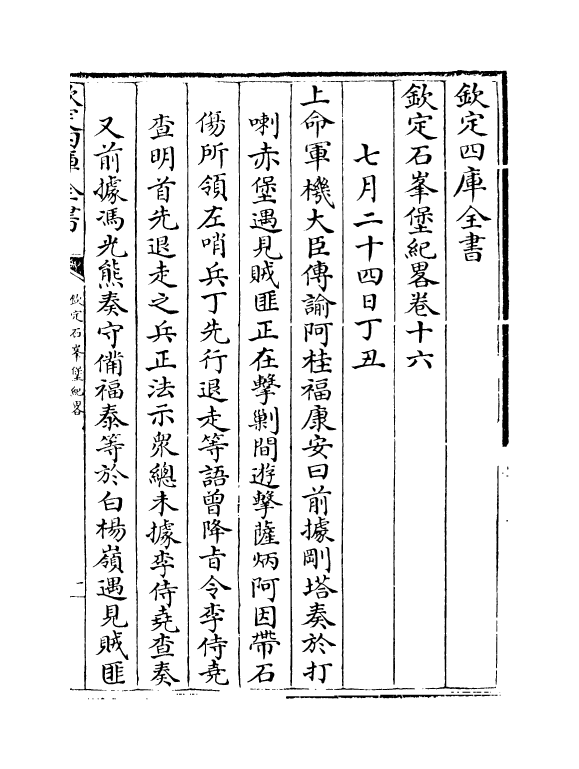 欽定四庫全書
欽定石峯堡紀畧卷十六
七月二十四日丁丑
上命軍機大臣傳諭阿桂福康安曰前據剛塔奏於打
喇赤堡遇見賊匪正在擊剿間遊擊薩炳阿因帶石
傷所領左哨兵丁先行退走等語曾降㫖令李侍堯
查明首先退走之兵正法示衆總未據李侍堯查奏
又前據馮光熊奏守備福泰等於白楊嶺遇見賊匪
欽定四庫全書
欽定石峯堡紀畧